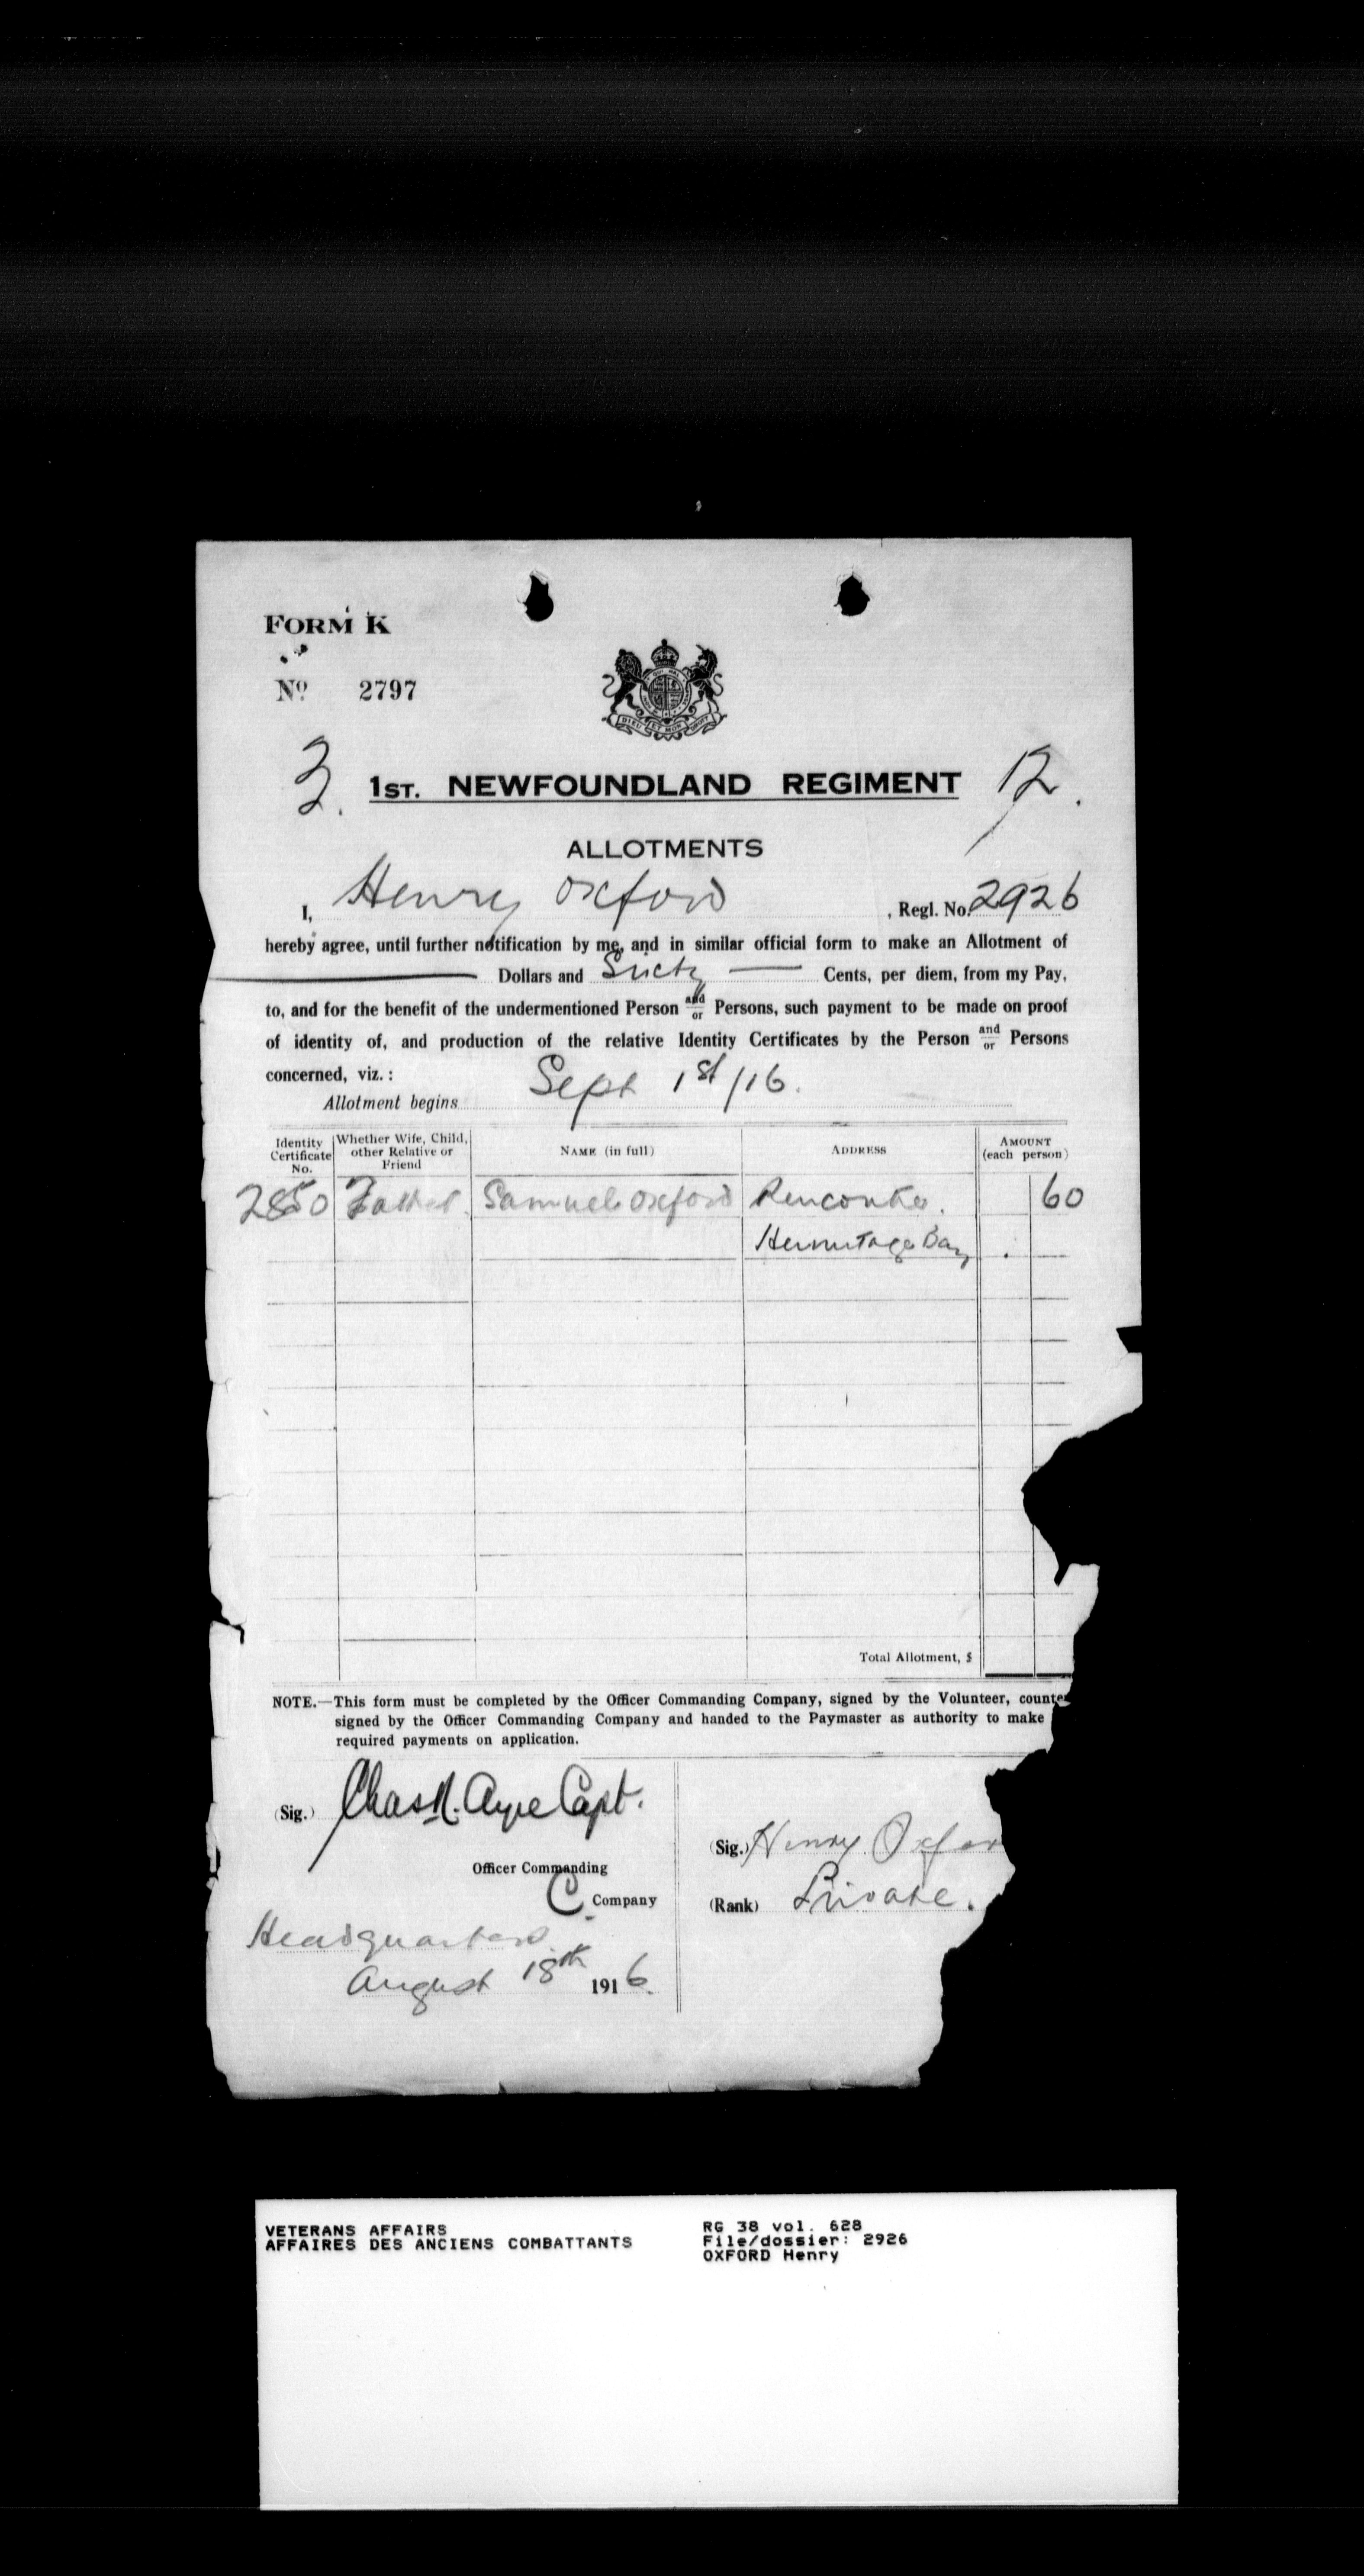 FORM K
No 2797
3.
12.
1ST. NEWFOUNDLAND REGIMENT
ALLOTMENTS
I, Henry Oxford, Regl. No. 2926
hereby agree, until further notification by me, and in similar official form to make an Allotment of
Dollars and Sixty Cents, per diem, from my Pay,
to, and for the benefit of the undermentioned Person and/or Persons, such payment to be made on proof
of identity of, and production of the relative Identity Certificates by the Person and/or Persons
concerned, viz. :
Allotment begins Sept 1st/16.
Identity Certificate No. Whether Wife, Child, other Relative or Friend NAME (in full) ADDRESS AMOUNT (each person)
2850 Father. Samuel Oxford Rencontre. 60
Hermitage Bay
Total Allotment, $
NOTE.—This form must be completed by the Officer Commanding Company, signed by the Volunteer, counte
signed by the Officer Commanding Company and handed to the Paymaster as authority to make
required payments on application.
(Sig.) Chas R. Ayre Capt.
Officer Commanding
C Company
Headquarters
August 18th 1916.
(Sig.) Henry Oxfor
(Rank) Private.
VETERANS AFFAIRS
AFFAIRES DES ANCIENS COMBATTANTS
RG 38 vol. 628
File/dossier: 2926
OXFORD Henry